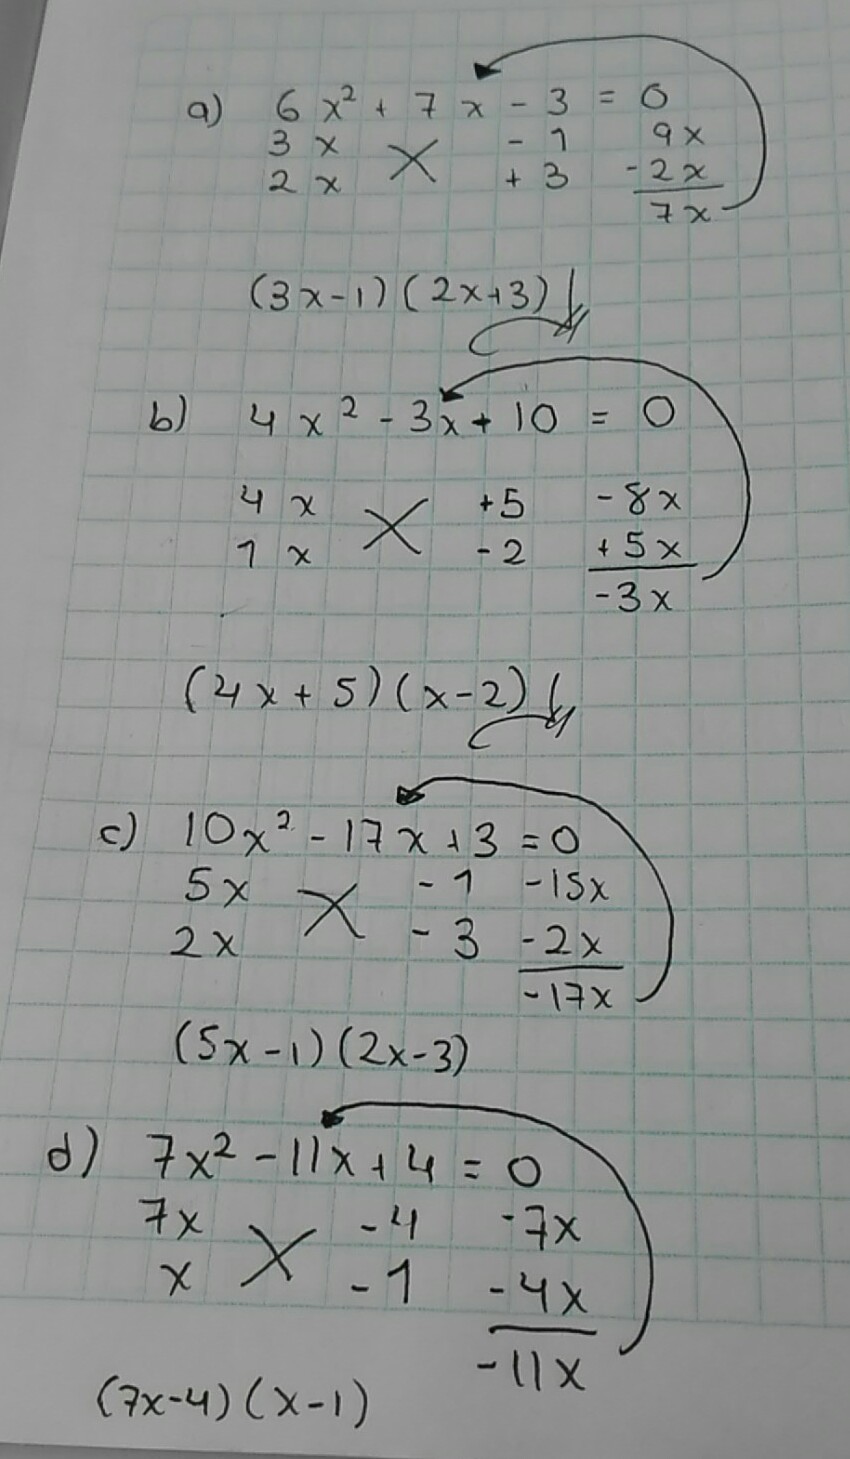 a) 6x² + 7x - 3 = 0
3x X - 1 9x
2x + 3 - 2x
7x
(3x-1)(2x+3)
b) 4x² - 3x + 10 = 0
4x X +5 - 8x
1x - 2 + 5x
- 3x
(4x + 5)(x - 2)
c) 10x² - 17x + 3 = 0
5x X - 1 - 15x
2x - 3 - 2x
- 17x
(5x - 1)(2x - 3)
d) 7x² - 11x + 4 = 0
7x X - 4 - 7x
x - 1 - 4x
- 11x
(7x-4)(x-1)